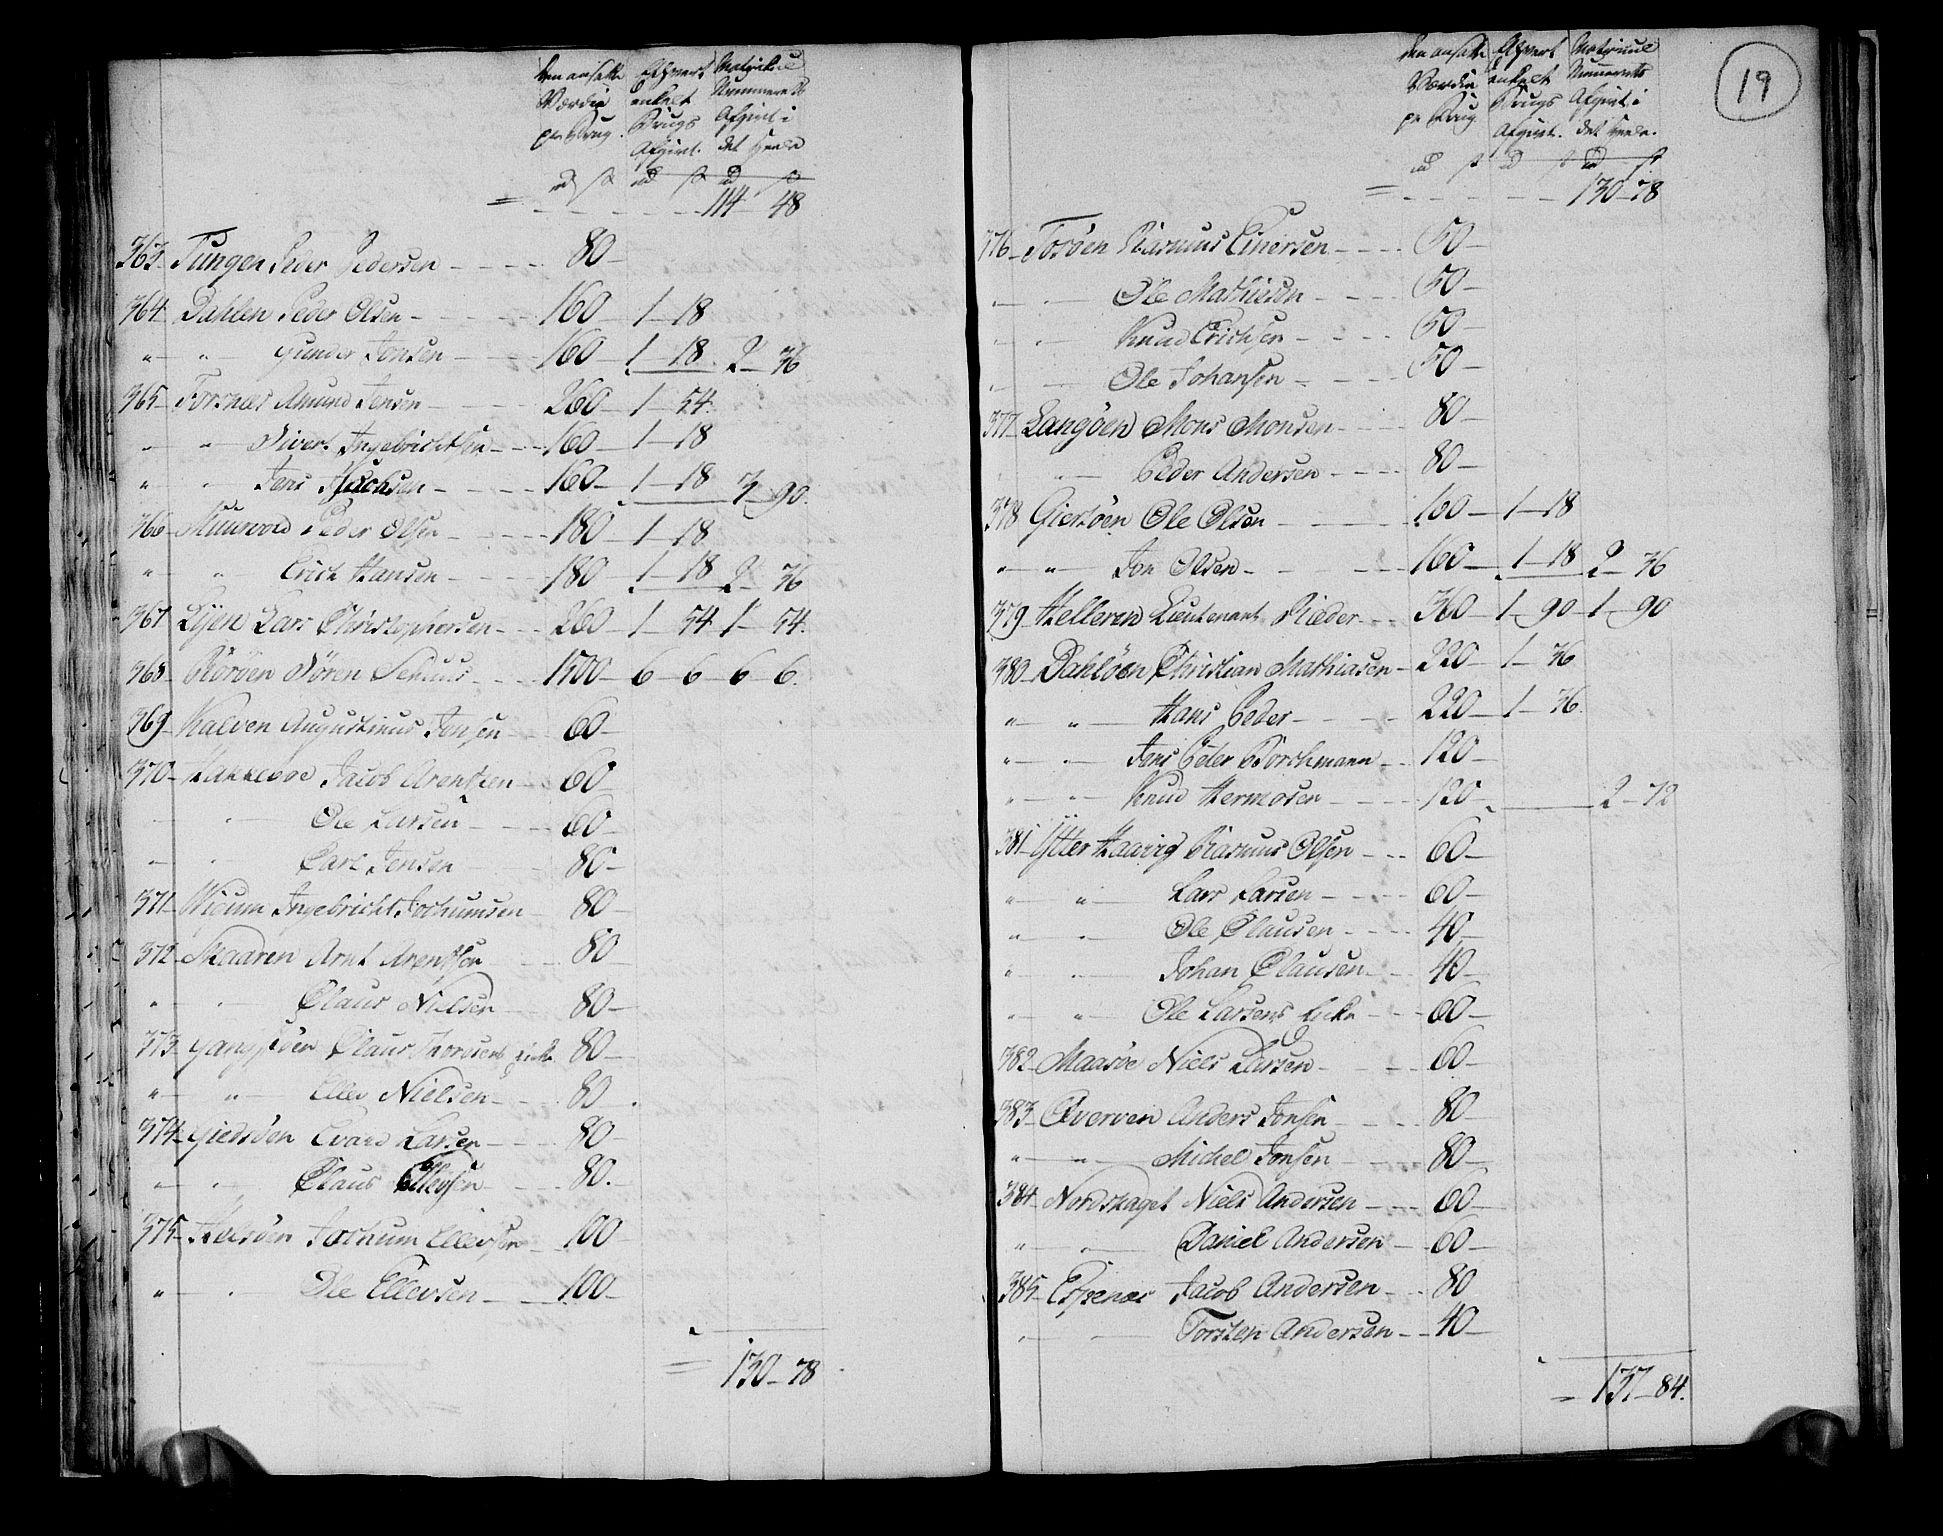 den ansatte Ethvert Matrikul
Værdie enkelt Nummerets
pr Brug. Brugs Afgivt i
Afgivt. det heele
rd s rd s rd s
= 114 - 48
363 - Tungen Peder Pedersen - 80 -
364 - Dahlen Peder Olsen - 160 - 1 - 18
" - " - Gunder Jonsen - 160 - 1 - 18. 2 - 36
365 - Forsnæs Amund Jensen - 260 - 1 - 54.
" - " - Sivert Ingebrichtsen - 160 - 1 - 18
" - " - Jens - 160 - 1 - 18 3 - 90.
366 - Muurvold Peder Olsen - 180 - 1 - 18
" - " Erich Hansen - 180 - 1 - 18 2 - 36
367 - Lyen Lars Christophersen - 260 - 1 - 54 1 - 54.
368 - Röröen Sören Schuus - 1500 - 6 - 6 - 6 - 6.
369 - Kalven Augustinus Jonsen - 60 -
370 - Hakkeboe Jacob Arentzen - 60 -
" - Ole Larsen - 60 -
" - " Carl Jensen - 80 -
371 - Wigum Ingebricht Jochumsen - 80 -
372 - Skaaren Arnt Arentsen - 80 -
" - " - Claus Nielsen - 80 -
373 - Claus Thordsens Enke 80 -
" - " - Ellev Nielsen - 80 -
374 - Giedsöen Evard Larsen - 80 -
" - " - Claus Ellevsen - 80. -
375 - Helsöen Jochum Ellevsen - 100 -
" - " - Ole Ellevsen - 100 -
= 130 - 78
19
den ansatte Ethvert Matrikul
Værdie enkelt Nummerets
pr Brug Brugs Afgivt i
Afgivt. det heele.
rd s rd s rd s
= 130 - 78
376 - Tosöen Rasmus Einersen - 50 -
" - Ole Mathiesen - 50 -
" - " - Knud Erichsen - 50 -
" - Ole Johansen - 50 -
377 - Langöen Mons Monsen - 80 -
" - " - Peder Andersen - 80 -
378 - Giersöen Ole Olsen - 160 - 1 - 18
" - " - Jon Olsen - 160 - 1 - 18 2 - 36
379 - Helleren Lieutenant Ræder - 360 - 1 - 90 - 1 - 90
380 - Dahlöen Christian Mathiasen - 220 - 1 - 36
" - " - Hans Peder - 220 - 1 - 36.
" - " - Jens Peter Borchmann - 120 -
" - " - Knud Hermosen - 120 - 2 - 72
381 - Ytter Haavig Rasmus Olsen - 60 -
" - " - Lars Larsen - 60 -
" - " - Ole Clausen - 40 -
" - " - Johan Clausen - 40 -
" - " - Ole Larsens Enke - 60 -
382 - Maasöe Niels Larsen - 60 -
383 - Qverven Anders Jonsen - 80
" - " - Michel Jonsen - 80 -
384 - Nordskaget Niels Andersen - 60 -
" - " - Daniel Andersen - 60 -
385 - Espenæs Jacob Andersen - 80
" - Torsten Andersen - 40 -
= 137 - 84.